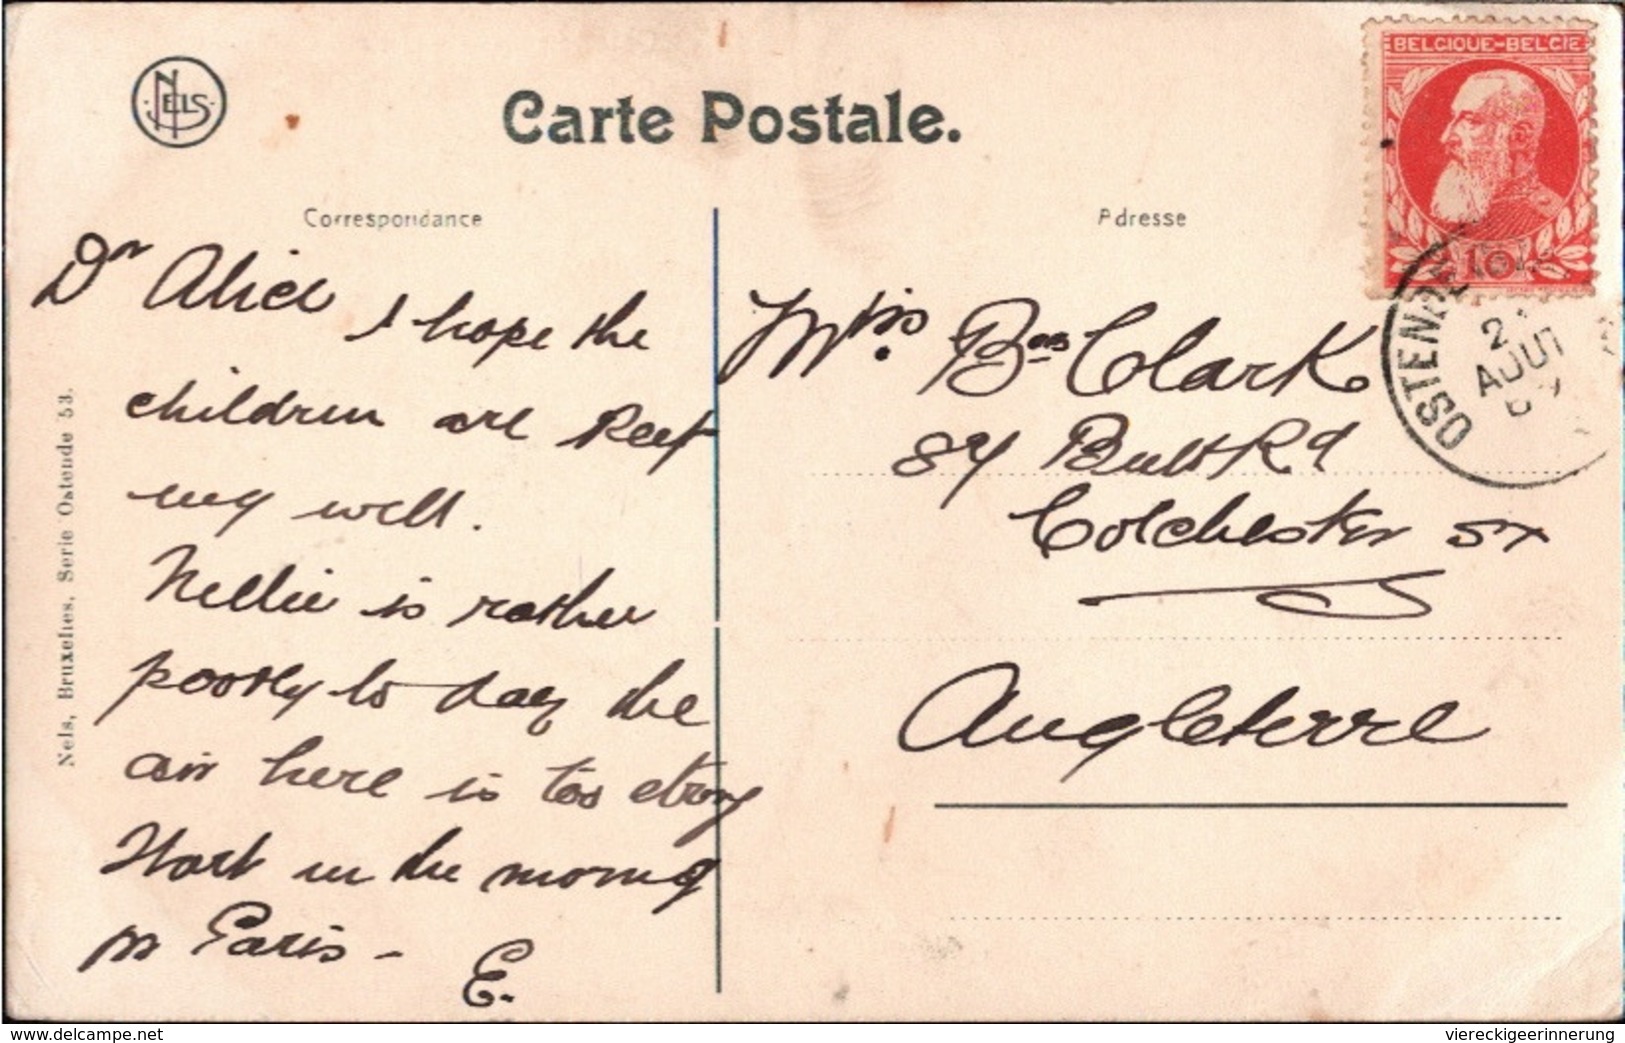 NELS
Carte Postale.
BELGIQUE-BELGIË
Correspondance
Adresse
Dr Alice I hope the
children are keep
ing well.
Nellie is rather
poorly to day the
air here is too strong
Start in the morning
for Paris -
E.
Nels, Bruxelles, Serie Ostende 53.
Mrs. Clark
84 Butt Rd
Colchester Sx
Angleterre
OSTENDE
AOUT
www.delcampe.net
viereckigeerinnerung